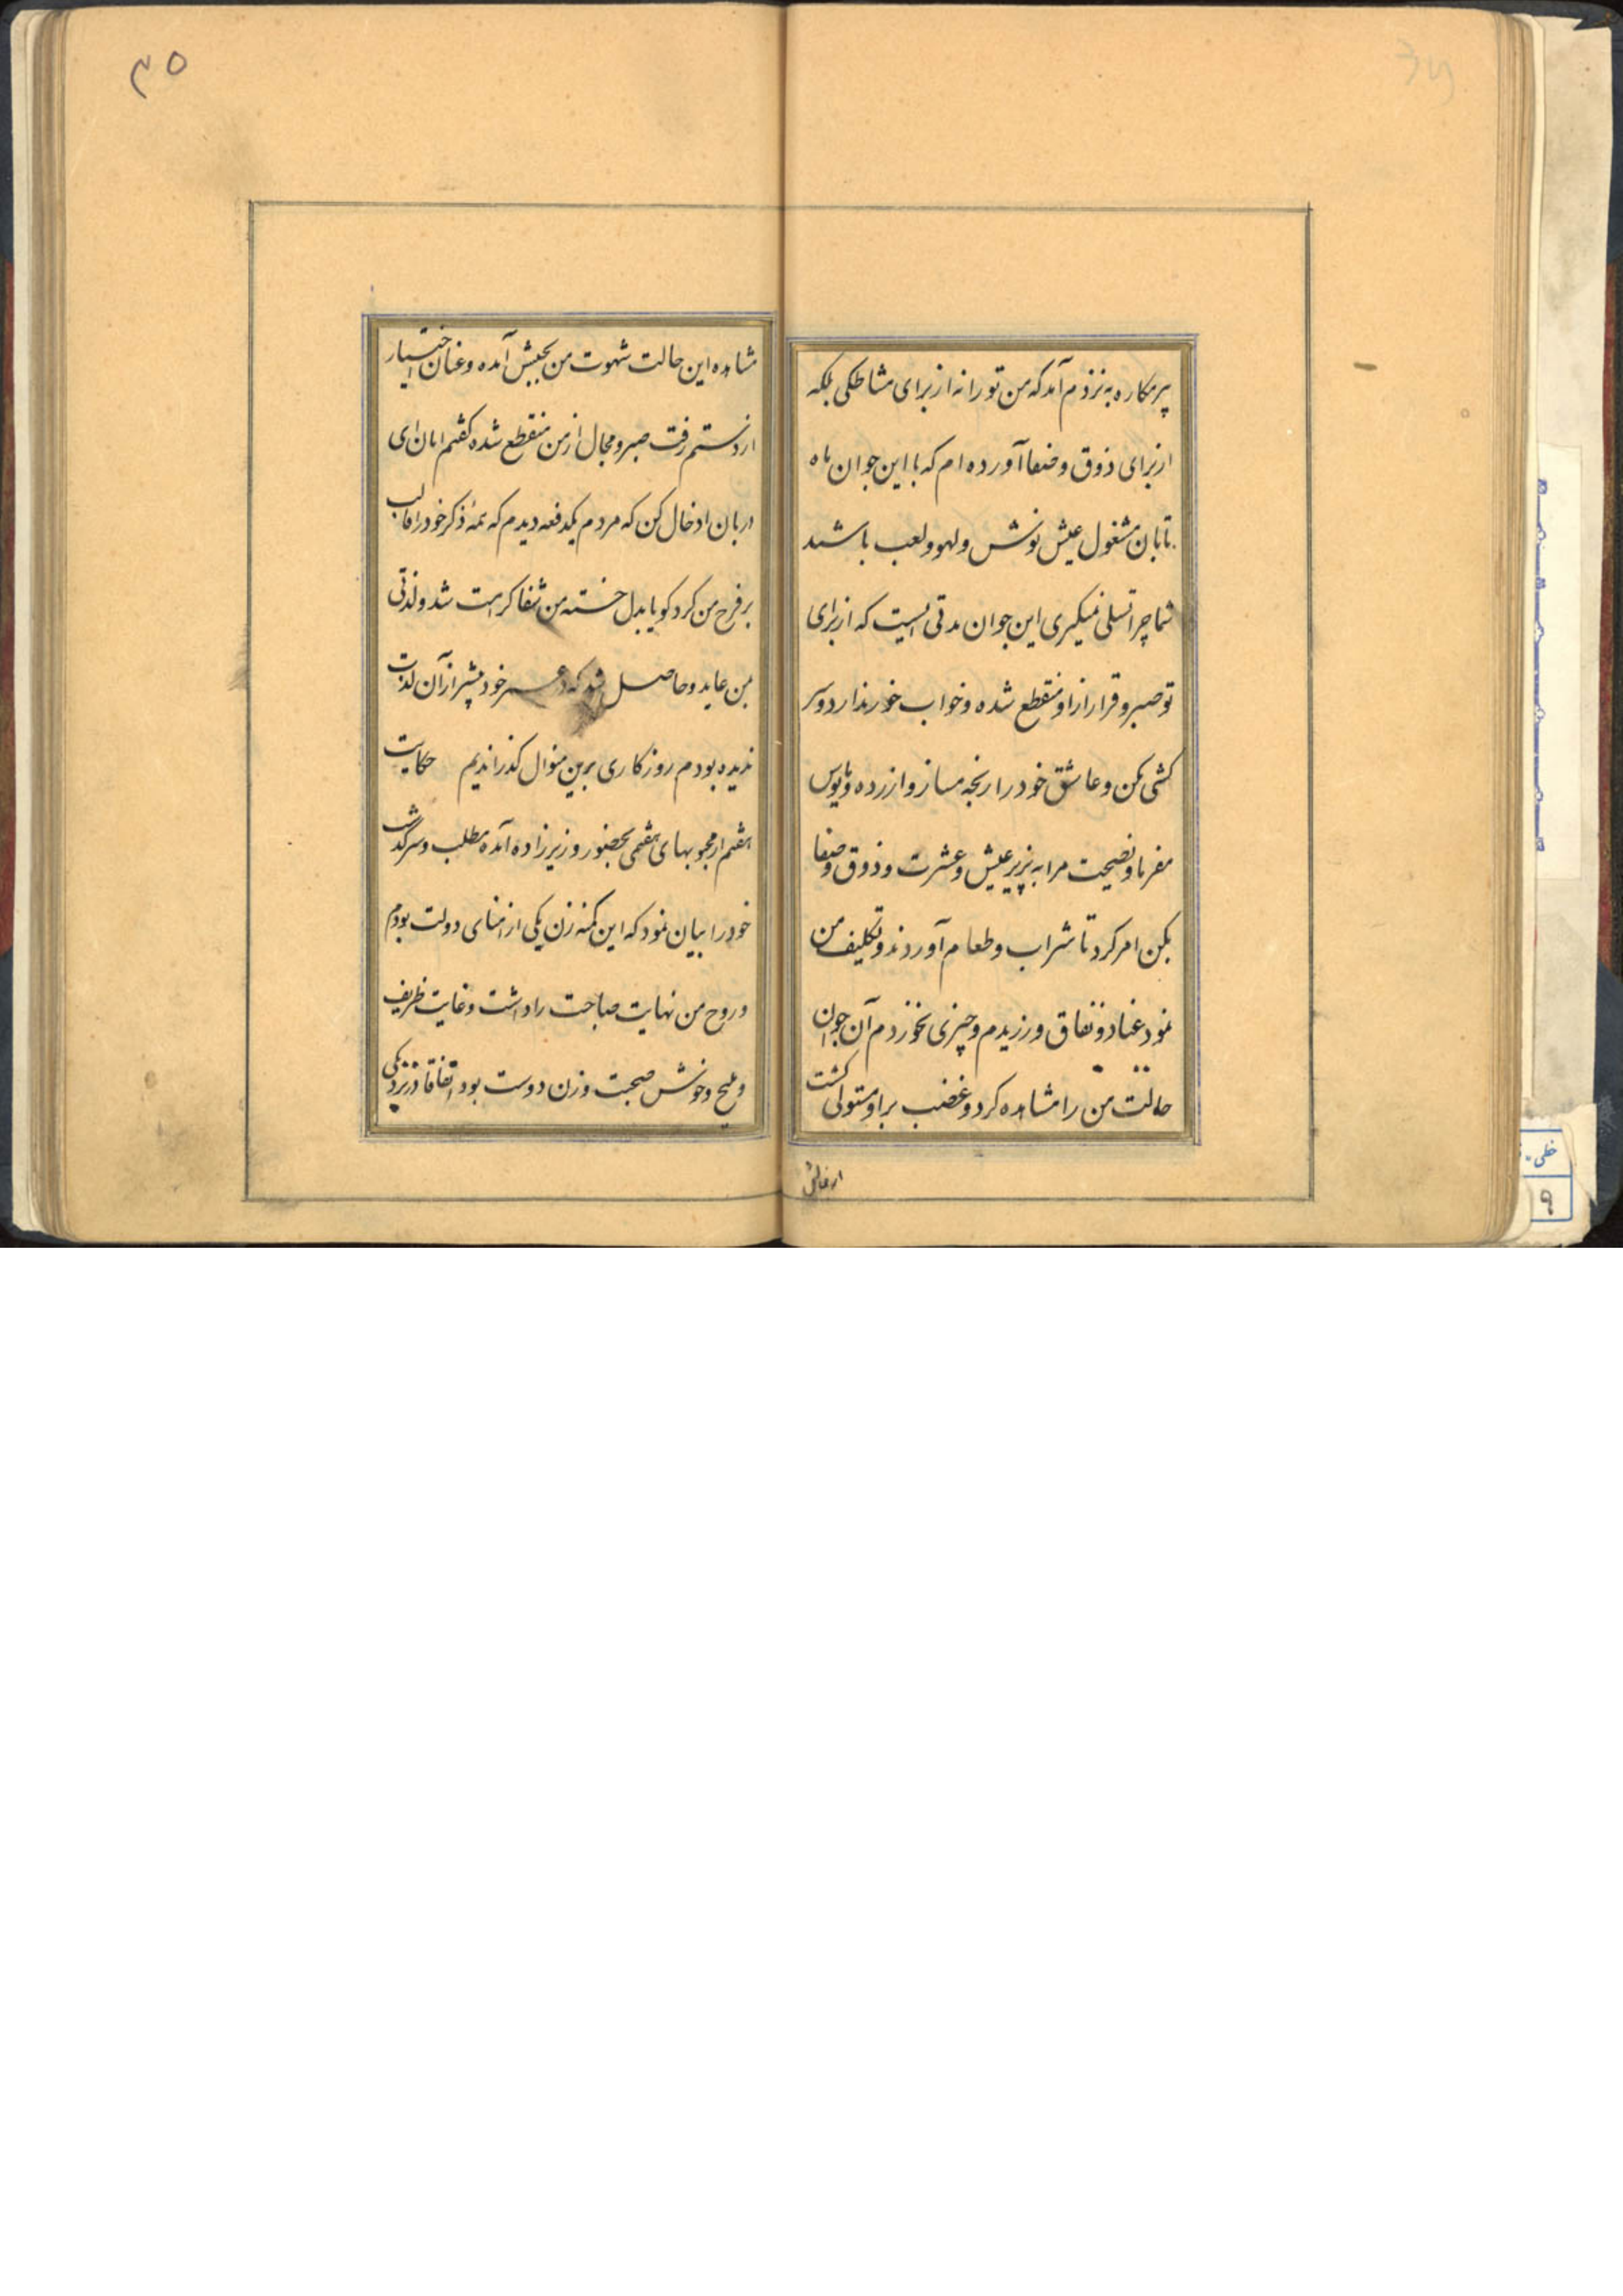 پر مکاره به نزدم آمد که من تو را نه از برای مشاطکی بلکه
از برای ذوق و صفا آورده ام که با این جوان ماه
تابان مشغول عیش نوش و لهو و لعب باشید
شما چرا تسلی نمیکیری این جوان مدتی است که از برای
تو صبر و قرار از او منقطع شده و خواب خور ندارد و سر
کشی مکن و عاشق خود را رنجه مساز و ازرده و مایوس
مفرما و نصیحت مرا به پذیر عیش و عشرت و ذوق و صفا
بکن امر کرد تا شراب و طعام آوردند و تکلیف من
نمود عناد و نفاق ورزیدم و چیزی نخوردم آن جوان
حالت من را مشاهده کرد و غضب بر او مستولی کشت
۳۵
مشاهده این حالت شهوت من بجنبش آمده و عنان اختیار
از دستم رفت صبر و مجال از من منقطع شده کفتم امان ای
دربان ادخال کن که مردم یکدفعه دیدم که همهٔ ذکر خود را قالب
بر فرج من کرد کویا بدل خسته من شفا کرامت شد و لذتی
بمن عاید و حاصل شد که در عمر خود بیشتر از آن لذت
ندیده بودم روزکاری برین منوال کذراندیم حکایت
هفتم از محبوبهای هفتمی بحضور وزیرزاده آمده مطلب و سرکذشت
خود را بیان نمود که این کمنه زن یکی از امنای دولت بودم
و زوج من نهایت صباحت را داشت و غایت ظریف
و ملیح و خوش صحبت وزن دوست بود اتفاقا در نزدیکی
خطی
۹